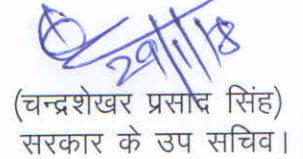 29/1/18
(चन्द्रशेखर प्रसाद सिंह)
सरकार के उप सचिव।